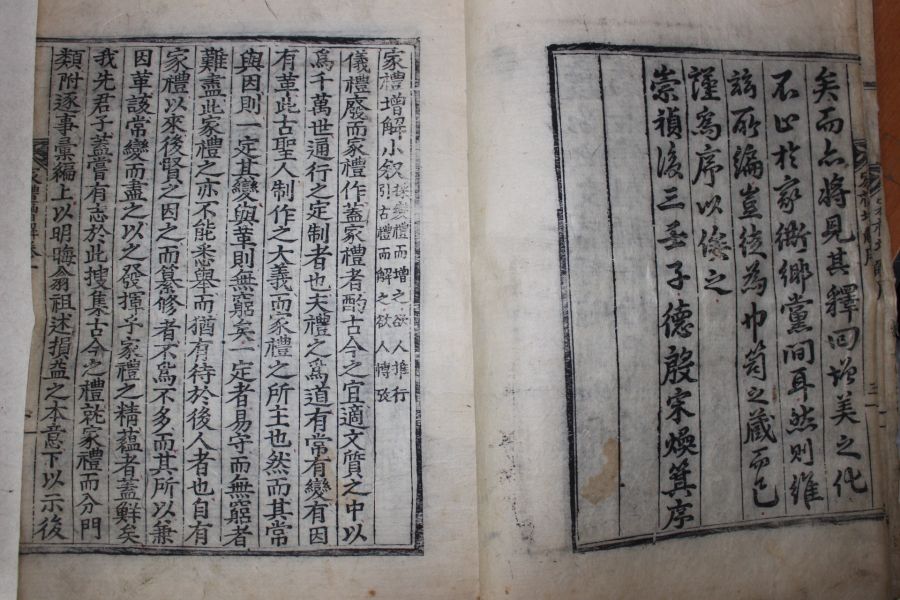 矣而亦將見其釋回增美之化
不止於家衖鄉黨間耳然則維
玆所編豈徒為巾笥之藏而已
謹為序以俟之
崇禎後三壬子德殷宋煥箕序
家禮增解小叙
採變禮而增之欲人推行
引古禮而解之欲人慱攷
儀禮廢而家禮作蓋家禮者酌古今之宜適文質之中以
爲千萬世通行之定制者也夫禮之爲道有常有變有因
有革此古聖人制作之大義而家禮之所主也然而其常
與因則一定其變與革則無窮矣一定者易守而無窮者
難盡此家禮之亦不能悉舉而猶有待於後人者也自有
家禮以來後賢之因之而纂修者不爲不多而其所以兼
因革該常變而盡之以之發揮乎家禮之精蘊者蓋鮮矣
我先君子蓋嘗有志於此搜集古今之禮就家禮而分門
類附逐事彙編上以明晦翁祖述損益之本意下以示後